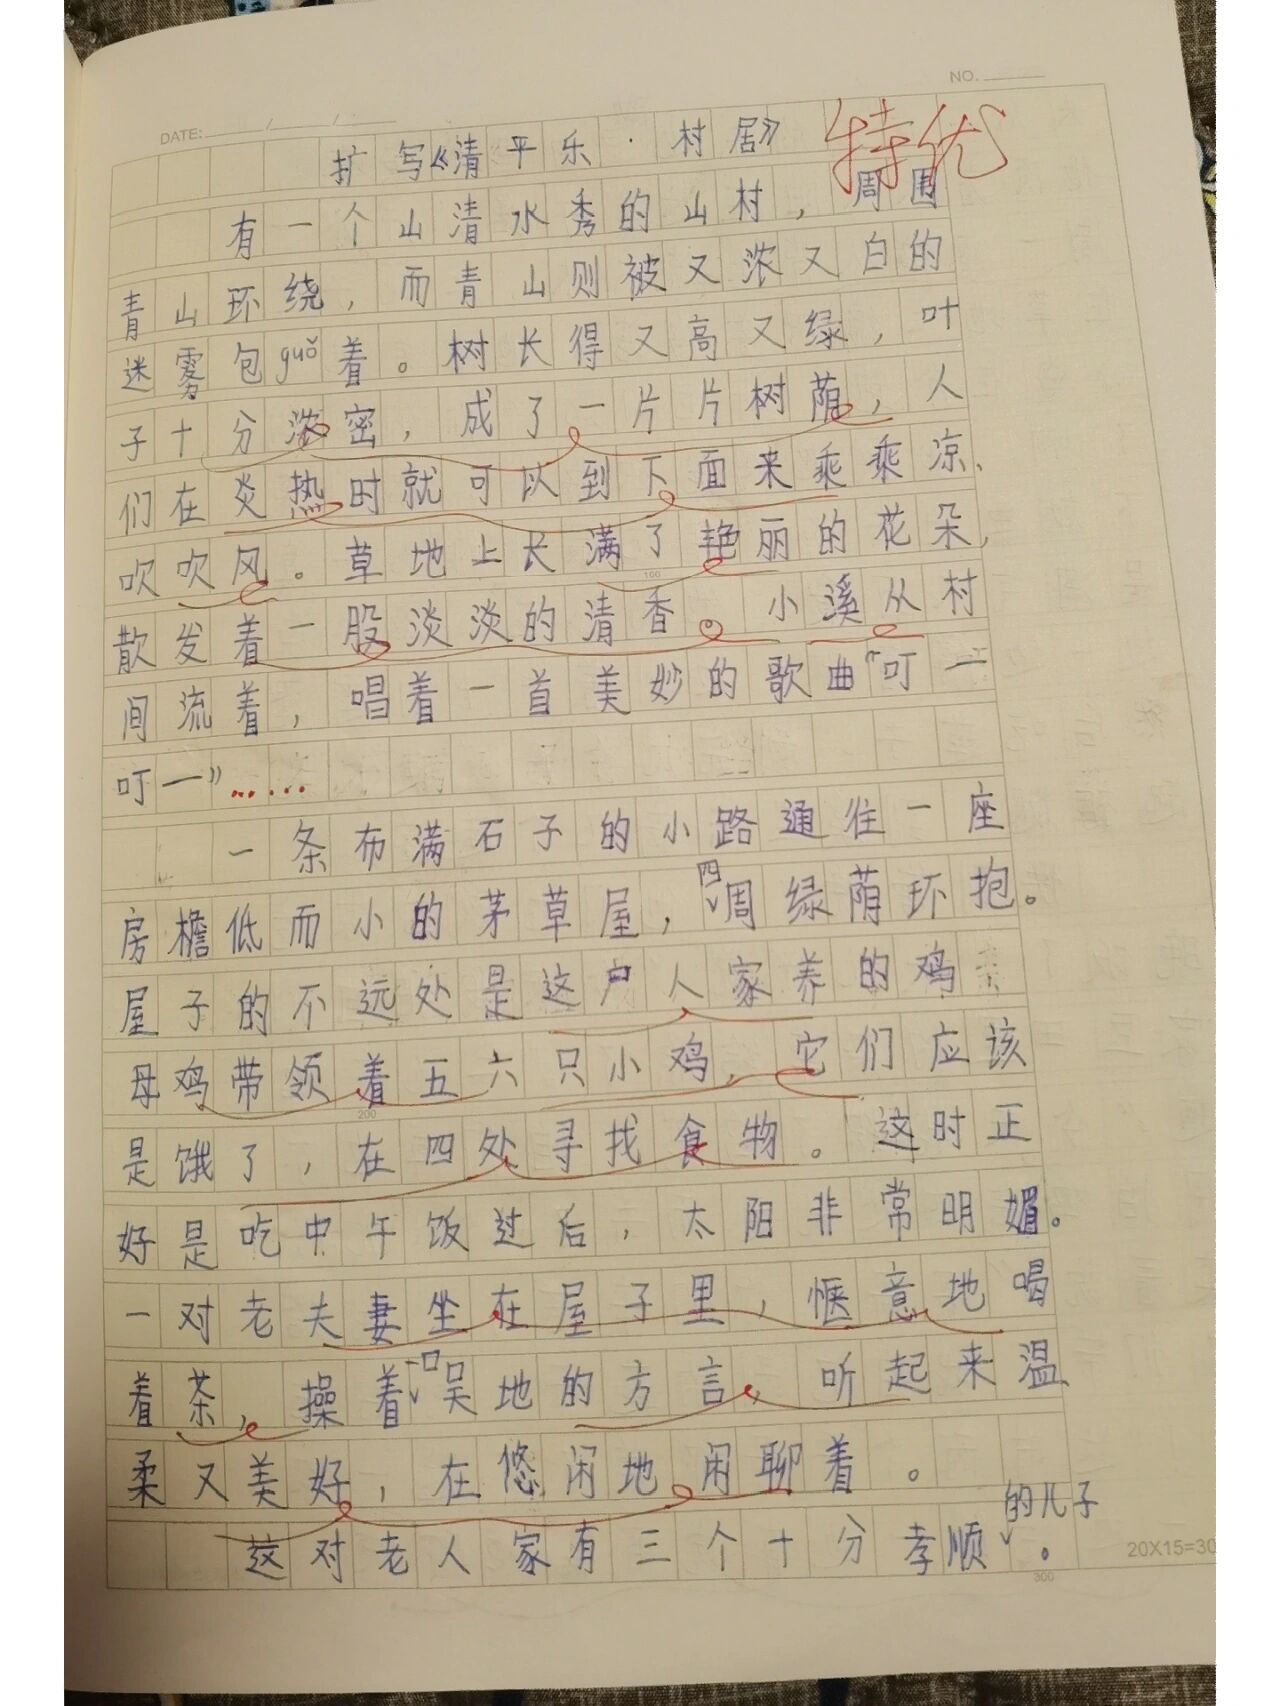 NO.
DATE: / /
扩写《清平乐·村居》
特优
有一个山清水秀的山村，周围
青山环绕，而青山则被又浓又白的
迷雾包guǒ着。树长得又高又绿，叶
子十分浓密，成了一片片树荫，人
们在炎热时就可以到下面来乘乘凉、
吹吹风。草地上长满了艳丽的花朵，
100
散发着一股淡淡的清香。小溪从村
间流着，唱着一首美妙的歌曲“叮一
叮一”……
一条布满石子的小路通往一座
房檐低而小的茅草屋，四周绿荫环抱。
屋子的不远处是这户人家养的鸡
母鸡带领着五六只小鸡，它们应该
200
是饿了，在四处寻找食物。这时正
好是吃中午饭过后，太阳非常明媚。
一对老夫妻坐在屋子里，惬意地喝
着茶，操着一口吴地的方言，听起来温
柔又美好，在悠闲地闲聊着。
这对老人家有三个十分孝顺的儿子。
20X15=30
300